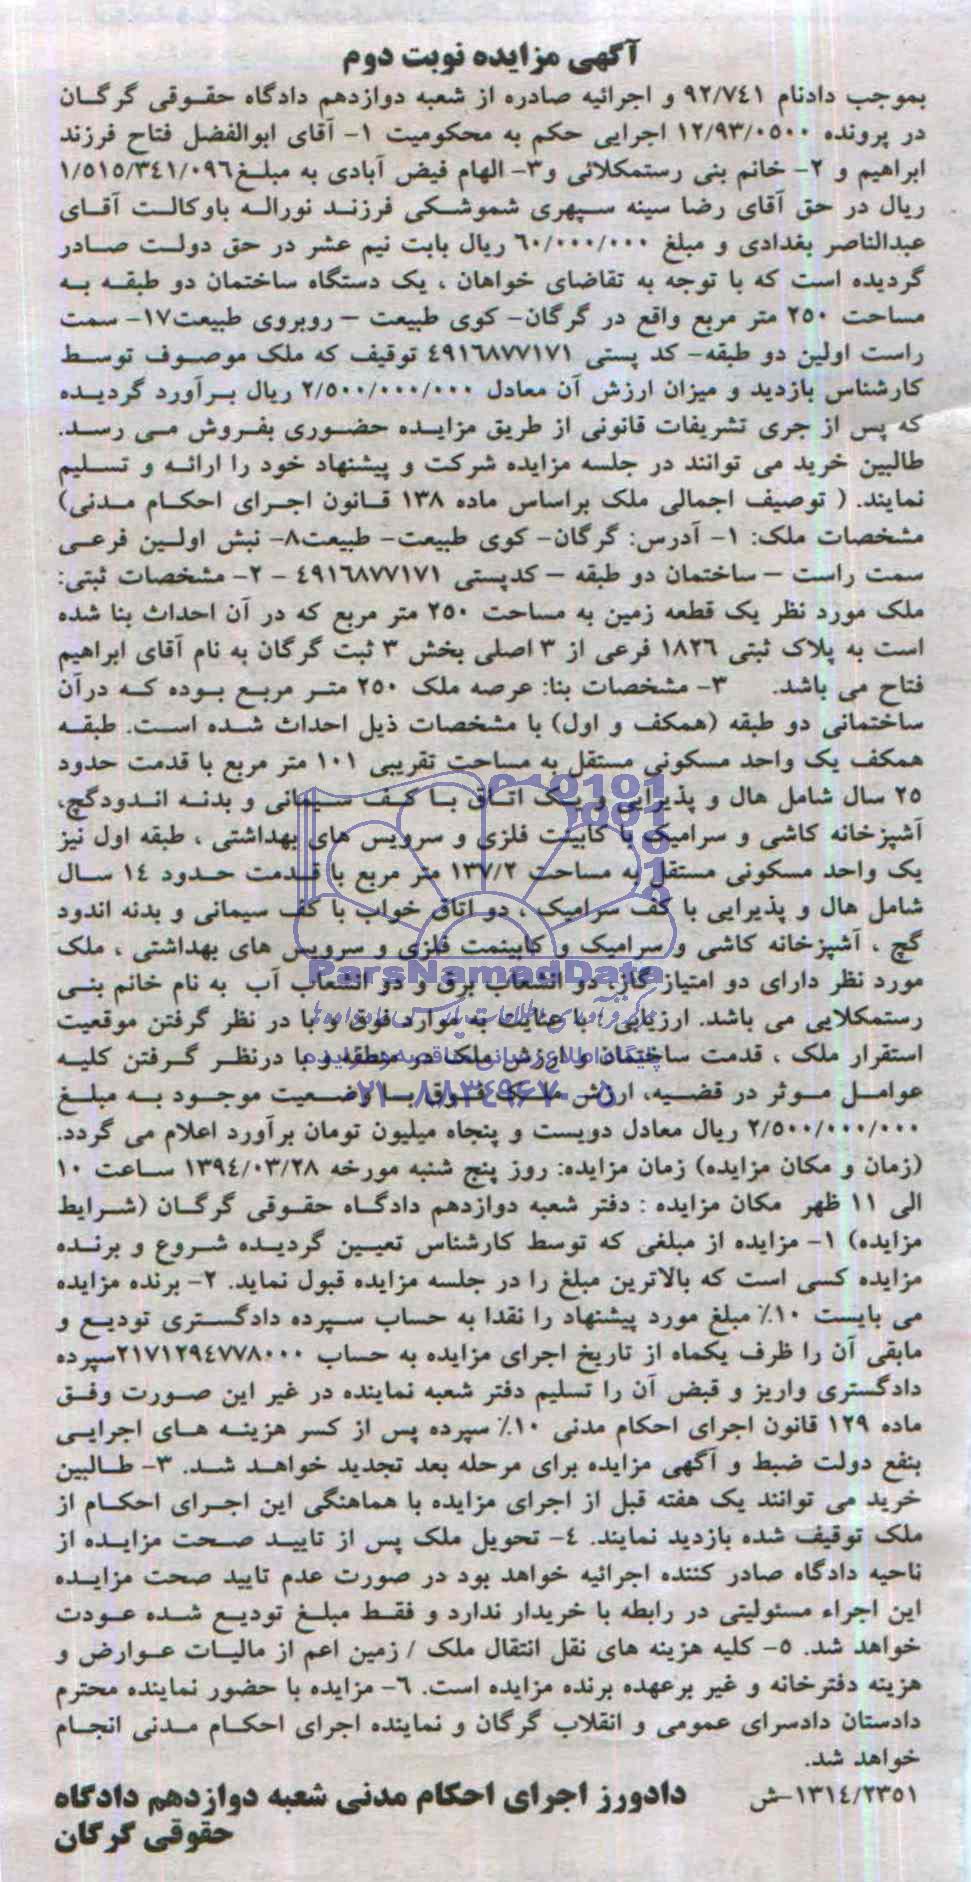 آگهی مزایده نوبت دوم
بموجب دادنام ۹۲/۷٤۱ و اجرائیه صادره از شعبه دوازدهم دادگاه حقوقی گرگان
در پرونده ۱۲/۹۳/۰۵۰۰ اجرایی حکم به محکومیت ۱- آقای ابوالفضل فتاح فرزند
ابراهیم و ۲- خانم بنی رستمکلائی و۳- الهام فیض آبادی به مبلغ۱/۵۱۵/۳٤۱/۰۹٦
ریال در حق آقای رضا سینه سپهری شموشکی فرزند نوراله باوکالت آقای
عبدالناصر بغدادی و مبلغ ٦۰/۰۰۰/۰۰۰ ریال بابت نیم عشر در حق دولت صادر
گردیده است که با توجه به تقاضای خواهان ، یک دستگاه ساختمان دو طبقه به
مساحت ۲۵۰ متر مربع واقع در گرگان- کوی طبیعت – روبروی طبیعت۱۷- سمت
راست اولین دو طبقه- کد پستی ٤۹۱٦۸۷۷۱۷۱ توقیف که ملک موصوف توسط
کارشناس بازدید و میزان ارزش آن معادل ۲/۵۰۰/۰۰۰/۰۰۰ ریال برآورد گردیده
که پس از جری تشریفات قانونی از طریق مزایده حضوری بفروش می رسد.
طالبین خرید می توانند در جلسه مزایده شرکت و پیشنهاد خود را ارائه و تسلیم
نمایند. ( توصیف اجمالی ملک براساس ماده ۱۳۸ قانون اجرای احکام مدنی)
مشخصات ملک: ۱- آدرس: گرگان- کوی طبیعت- طبیعت۸- نبش اولین فرعی
سمت راست – ساختمان دو طبقه – کدپستی ٤۹۱٦۸۷۷۱۷۱ - ۲- مشخصات ثبتی:
ملک مورد نظر یک قطعه زمین به مساحت ۲۵۰ متر مربع که در آن احداث بنا شده
است به پلاک ثبتی ۱۸۲٦ فرعی از ۳ اصلی بخش ۳ ثبت گرگان به نام آقای ابراهیم
فتاح می باشد. ۳- مشخصات بنا: عرصه ملک ۲۵۰ متر مربع بوده که درآن
ساختمانی دو طبقه (همکف و اول) با مشخصات ذیل احداث شده است. طبقه
همکف یک واحد مسکونی مستقل به مساحت تقریبی ۱۰۱ متر مربع با قدمت حدود
۲۵ سال شامل هال و پذیرایی و یک اتاق با کف سیمانی و بدنه اندودگچ،
آشپزخانه کاشی و سرامیک با کابینت فلزی و سرویس های بهداشتی ، طبقه اول نیز
یک واحد مسکونی مستقل به مساحت ۱۳۷/۲ متر مربع با قدمت حدود ۱٤ سال
شامل هال و پذیرایی با کف سرامیک ، دو اتاق خواب با کف سیمانی و بدنه اندود
گچ ، آشپزخانه کاشی و سرامیک و کابینمت فلزی و سرویس های بهداشتی ، ملک
ParsNamadData
مورد نظر دارای دو امتیاز گاز، دو انشعاب برق و دو انشعاب آب به نام خانم بنی
رستمکلایی می باشد. ارزیابی: با عنایت به موارد فوق و با در نظر گرفتن موقعیت
استقرار ملک ، قدمت ساختمان و ارزش ملک در منطقه و با درنظر گرفتن کلیه
پایگاه اطلاع رسانی مناقصه و مزایده
عوامل موثر در قضیه، ارزش ملک فوق با وضعیت موجود به مبلغ
۰۲۱-۸۸۳٤۹٦۷۰-۵
۲/۵۰۰/۰۰۰/۰۰۰ ریال معادل دویست و پنجاه میلیون تومان برآورد اعلام می گردد.
(زمان و مکان مزایده) زمان مزایده: روز پنج شنبه مورخه ۱۳۹٤/۰۳/۲۸ ساعت ۱۰
الی ۱۱ ظهر مکان مزایده : دفتر شعبه دوازدهم دادگاه حقوقی گرگان (شرایط
مزایده) ۱- مزایده از مبلغی که توسط کارشناس تعیین گردیده شروع و برنده
مزایده کسی است که بالاترین مبلغ را در جلسه مزایده قبول نماید. ۲- برنده مزایده
می بایست ۱۰٪ مبلغ مورد پیشنهاد را نقدا به حساب سپرده دادگستری تودیع و
مابقی آن را ظرف یکماه از تاریخ اجرای مزایده به حساب ۲۱۷۱۲۹٤۷۷۸۰۰۰سپرده
دادگستری واریز و قبض آن را تسلیم دفتر شعبه نماینده در غیر این صورت وفق
ماده ۱۲۹ قانون اجرای احکام مدنی ۱۰٪ سپرده پس از کسر هزینه های اجرایی
بنفع دولت ضبط و آگهی مزایده برای مرحله بعد تجدید خواهد شد. ۳- طالبین
خرید می توانند یک هفته قبل از اجرای مزایده با هماهنگی این اجرای احکام از
ملک توقیف شده بازدید نمایند. ٤- تحویل ملک پس از تایید صحت مزایده از
ناحیه دادگاه صادر کننده اجرائیه خواهد بود در صورت عدم تایید صحت مزایده
این اجراء مسئولیتی در رابطه با خریدار ندارد و فقط مبلغ تودیع شده عودت
خواهد شد. ۵- کلیه هزینه های نقل انتقال ملک / زمین اعم از مالیات عوارض و
هزینه دفترخانه و غیر برعهده برنده مزایده است. ٦- مزایده با حضور نماینده محترم
دادستان دادسرای عمومی و انقلاب گرگان و نماینده اجرای احکام مدنی انجام
خواهد شد.
۱۳۱٤/۲۳۵۱-ش
دادورز اجرای احکام مدنی شعبه دوازدهم دادگاه
حقوقی گرگان